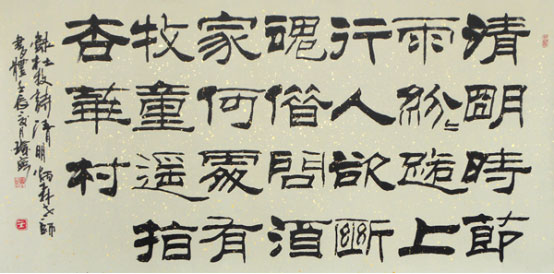 清明時節
雨紛〻路上
行人欲斷
魂借問酒
家何處有
牧童遥指
杏華村
錄杜牧詩清明
書體壬辰